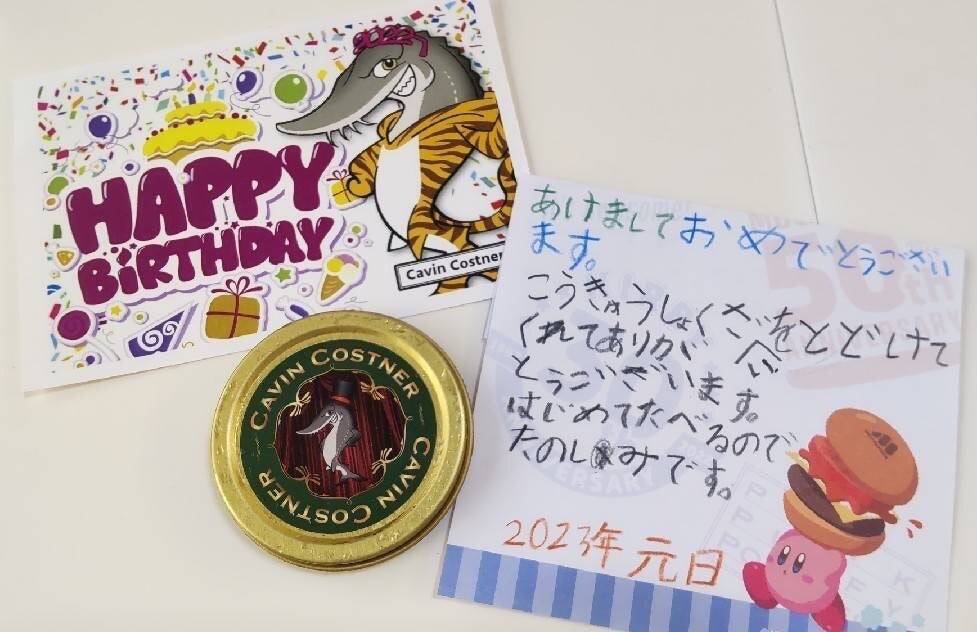 2022
HAPPY
BIRTHDAY
Cavin Costner
CAVIN COSTNER
CAVIN COSTNER
あけましておめでとうござい
ます。
こうきゅうしょくざいをとどけて
くれてありが
とうございます。
はじめてたべるので
たのしみです。
2023年 元日
50th
ERSARY